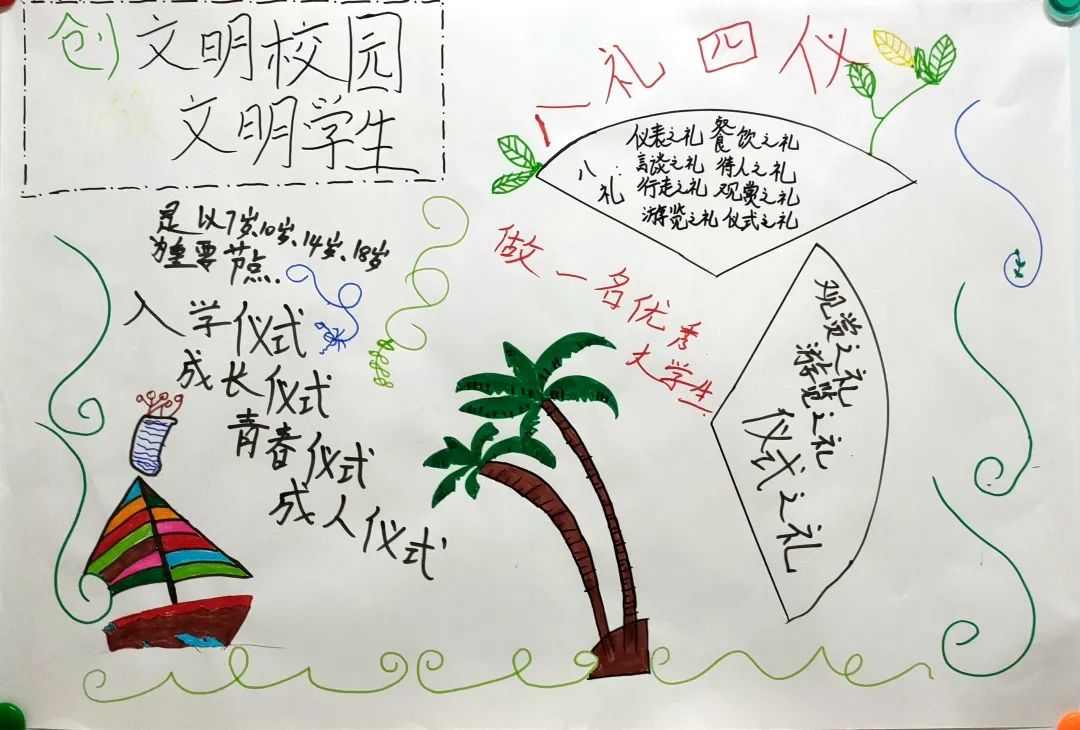 创文明校园
文明学生
八礼四仪
八礼:
仪表之礼 餐饮之礼
言谈之礼 待人之礼
行走之礼 观赏之礼
游览之礼 仪式之礼
是以7岁、10岁、14岁、18岁
为重要节点.
入学仪式
成长仪式
青春仪式
成人仪式
做一名优秀
大学生
观赏之礼
游览之礼
仪式之礼